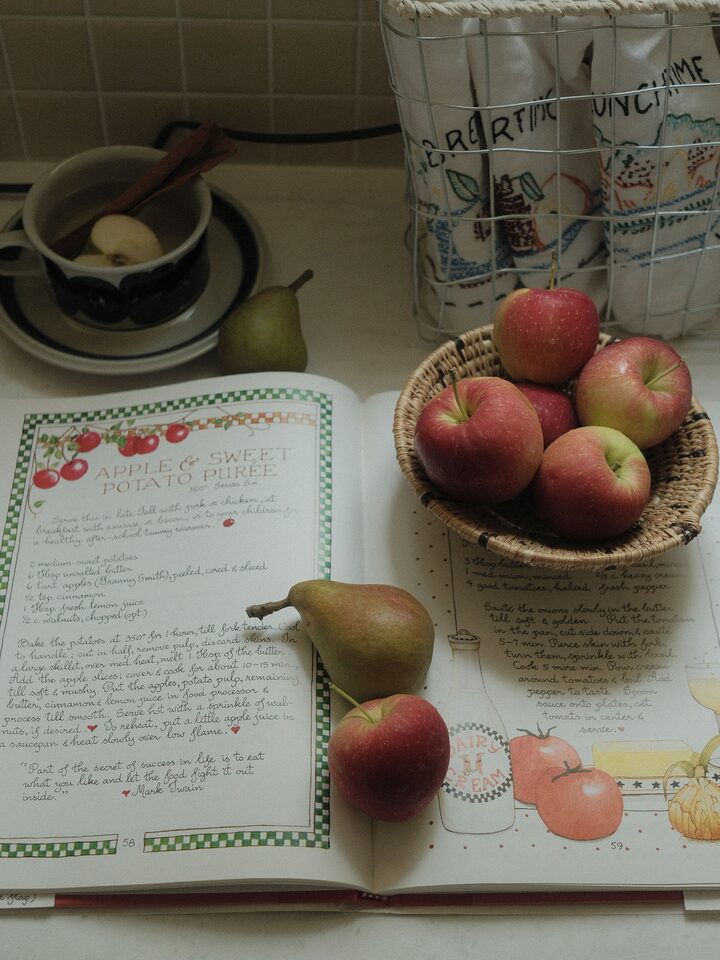 LUNCHTIME
APPLE & SWEET
POTATO PURÉE
350° Serves Six
Serve this in late Fall with pork or chicken, at
breakfast with sausage or bacon, or to your children for
a healthy after-school tummy warmer.
2 medium sweet potatoes
6 Tbsp. unsalted butter
6 tart apples (Granny Smith), peeled, cored & sliced
1/2 tsp. cinnamon
1 Tbsp. fresh lemon juice
1/2 c. walnuts, chopped (opt.)
Bake the potatoes at 350° for 1 hour, till fork tender. Cool
to handle; cut in half, remove pulp, discard skins. In
a large skillet, over med. heat, melt 1 Tbsp. of the butter.
Add the apple slices; cover & cook for about 10-15 min.,
till soft & mushy. Put the apples, potato pulp, remaining
butter, cinnamon & lemon juice in food processor &
process till smooth. Serve hot with a sprinkle of wal-
nuts, if desired. ♥ To reheat, put a little apple juice in
a saucepan & heat slowly over low flame. ♥
"Part of the secret of success in life is to eat
what you like and let the food fight it out
inside."
♥ Mark Twain
58
1 med. onion, minced
1/2 c. heavy cream
4 good tomatoes, halved
fresh pepper
Sauté the onions slowly in the butter
till soft & golden. Put the tomatoes
in the pan, cut side down, & sauté
5-7 min. Pierce skin with fork,
turn them, sprinkle with
Cook 5 more min. Pour cream
around tomatoes & boil. Add
pepper to taste. Spoon
sauce onto plates, set
tomato in center &
serve. ♥
DAIRY
CREAM
59